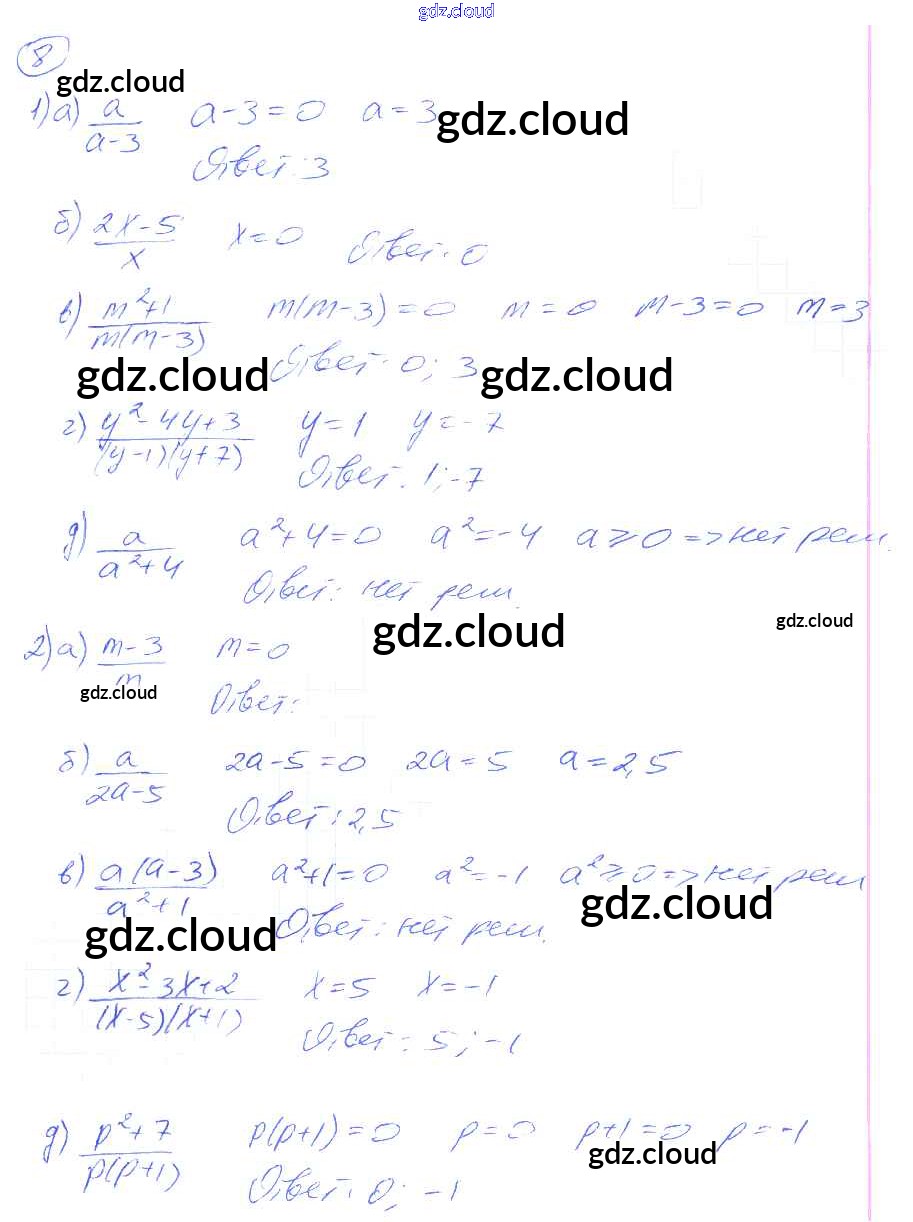 gdz.cloud
8
gdz.cloud
1) а) a/(a-3) a-3=0 a=3
gdz.cloud
Ответ: 3
б) (2x-5)/x x=0 Ответ: 0
в) (m²+1)/(m(m-3)) m(m-3)=0 m=0 m-3=0 m=3
Ответ: 0; 3
gdz.cloud gdz.cloud
г) (y²-4y+3)/((y-1)(y+7)) y=1 y=-7
Ответ: 1; -7
д) a/(a²+4) a²+4=0 a²=-4 a⩾0 => нет реш.
Ответ: нет реш.
gdz.cloud gdz.cloud
2) а) (m-3)/m m=0
gdz.cloud
Ответ:
б) a/(2a-5) 2a-5=0 2a=5 a=2,5
Ответ: 2,5
в) a(a-3)/(a²+1) a²+1=0 a²=-1 a²⩾0 => нет реш
gdz.cloud
Ответ: нет реш.
gdz.cloud
г) (x²-3x+2)/((x-5)(x+1)) x=5 x=-1
Ответ: 5; -1
д) (p²+7)/(p(p+1)) p(p+1)=0 p=0 p+1=0 p=-1
gdz.cloud
Ответ: 0; -1